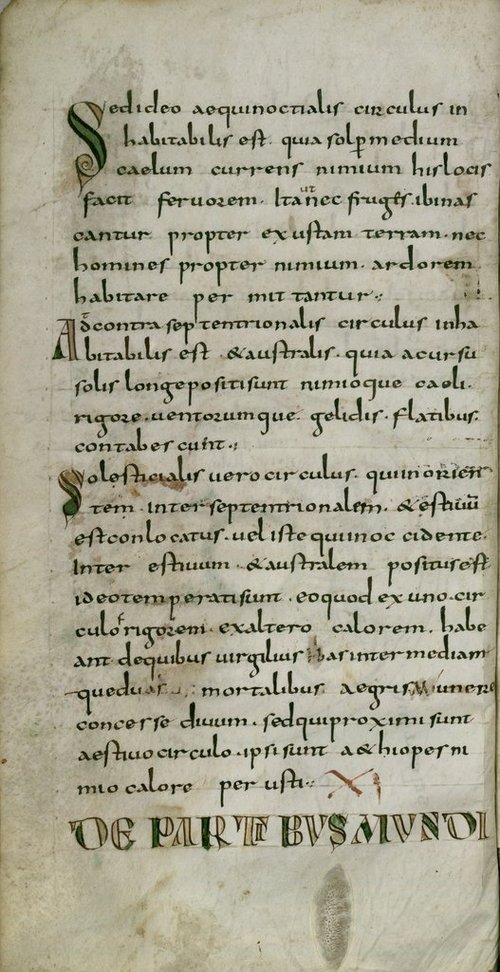 Sed ideo aequinoctialis circulus in
habitabilis est. quia sol p medium
caelum currens nimium his locis
facit fervorem. Ita ut nec fruges ibi nas
cantur propter exustam terram. nec
homines propter nimium. ardorem
habitare per mittantur:
Ad contra septentrionalis circulus inha
bitabilis est. & australis. quia a cursu
solis longe positi sunt nimioque caeli.
rigore. ventorumque. gelidis. flatibus.
contabescunt:
Solesticialis vero circulus. qui in orien
tem. inter septentrionalem. & estiuū
est conlocatus. vel iste qui in oc cidente.
Inter estiuum. & australem positus est
ideo temperati sunt. eo quod ex uno. cir
culo rigorem. ex altero calorem. habe
ant de quibus virgilius has inter mediam
que duas mortalibus aegris munere
concesse divum. sed qui proximi sunt
aestivo circulo. ipsi sunt a&hiopes ni
mio calore per usti: XI
DE PARTIBUS MUNDI